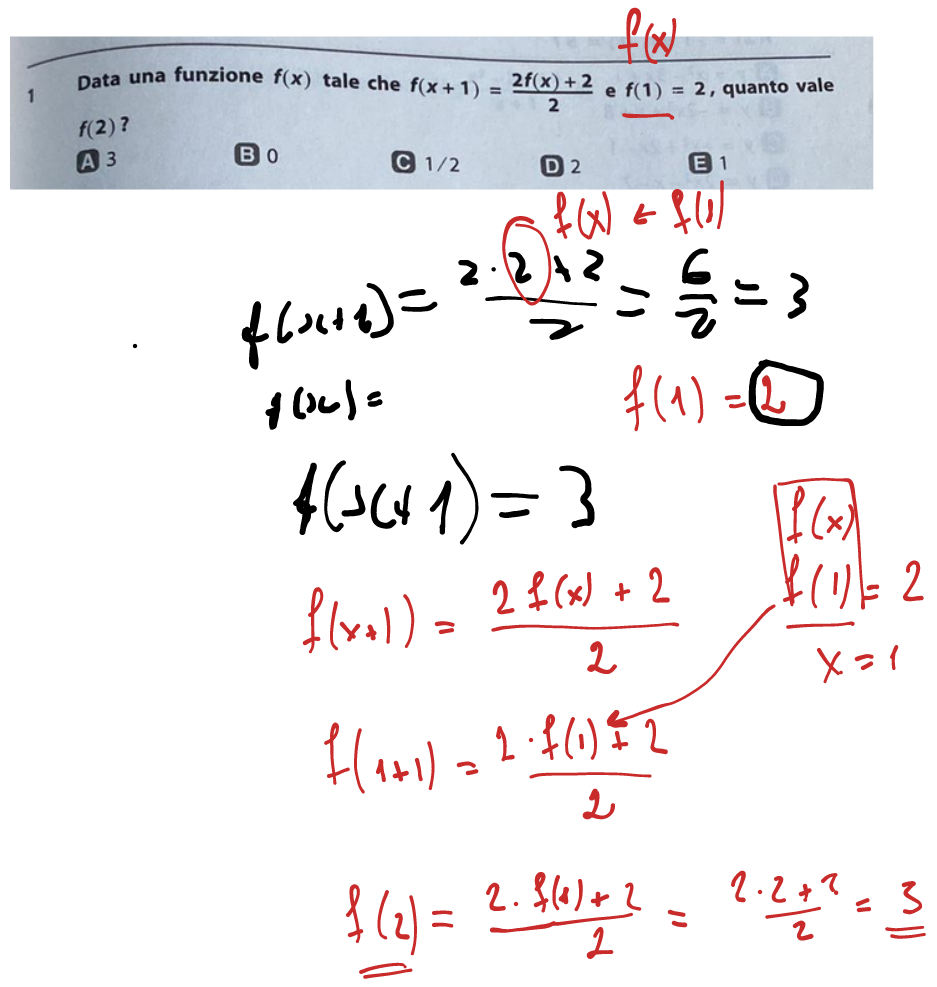 f(x)
1 Data una funzione f(x) tale che f(x + 1) = \frac{2f(x) + 2}{2} e f(1) = 2, quanto vale
f(2)?
A 3 B 0 C 1/2 D 2 E 1
f(x) ← f(1)
f(x+1) = \frac{2·2+2}{2} = \frac{6}{2} = 3
f(x) =
f(1) = 2
f(x+1) = 3
f(x)
f(x+1) = \frac{2 f(x) + 2}{2}
f(1) = 2
x = 1
f(1+1) = \frac{2·f(1) + 2}{2}
f(2) = \frac{2·f(1) + 2}{2} = \frac{2·2+2}{2} = 3